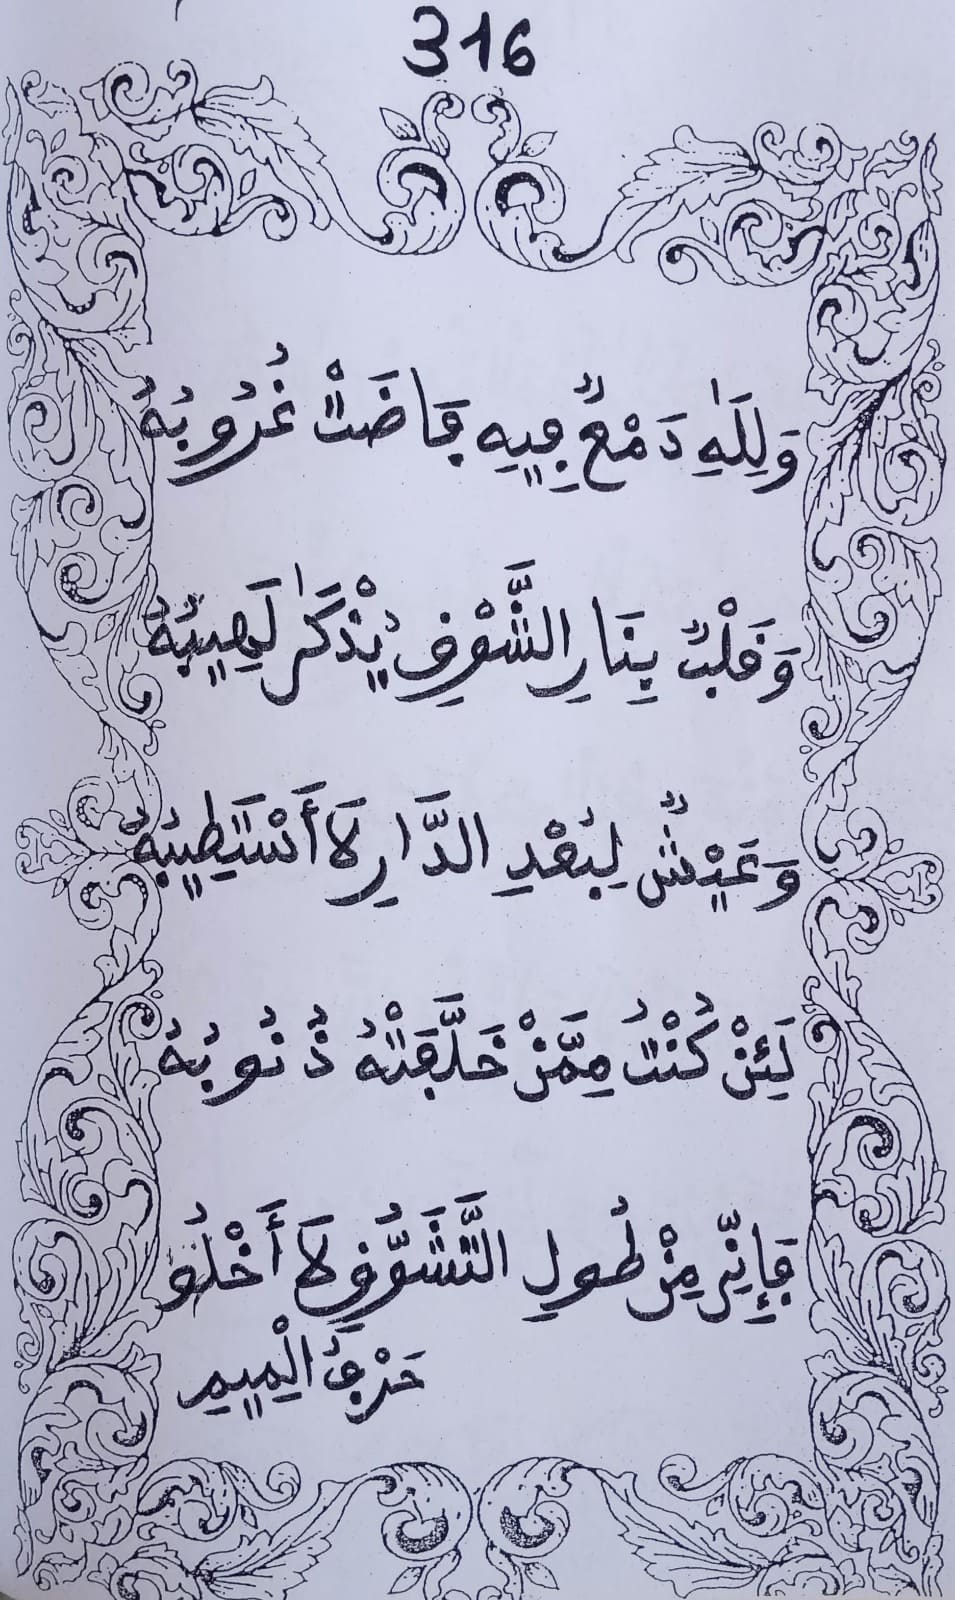 316
وَلِلَّهِ دَمْعٌ فِيهِ فَاضَتْ غُرُوبُهُ
وَقَلْبٌ بِنَارِ الشَّوْقِ يُذْكَىٰ لَهِيبُهُ
وَعَيْشٌ لِبُعْدِ الدَّارِ لَا أَسْتَطِيبُهُ
لَئِنْ كُنْتُ مِمَّنْ خَلَّفَتْهُ ذُنُوبُهُ
فَإِنِّي مِنْ طُولِ التَّشَوُّقِ لَا أَخْلُو
حَرْفُ الْمِيمِ